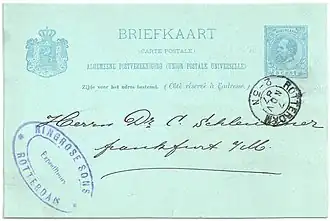 BRIEFKAART
(CARTE POSTALE)
ALGEMEENE POSTVEREENIGING (UNION POSTALE UNIVERSELLE)
Zijde voor het adres bestemd. (Côté réservé à l'adresse)
ROTTERDAM
Herrn Dr. C. Schleussner
Frankfurt a/M.
RINGROSE SONS
Expediteurs
ROTTERDAM